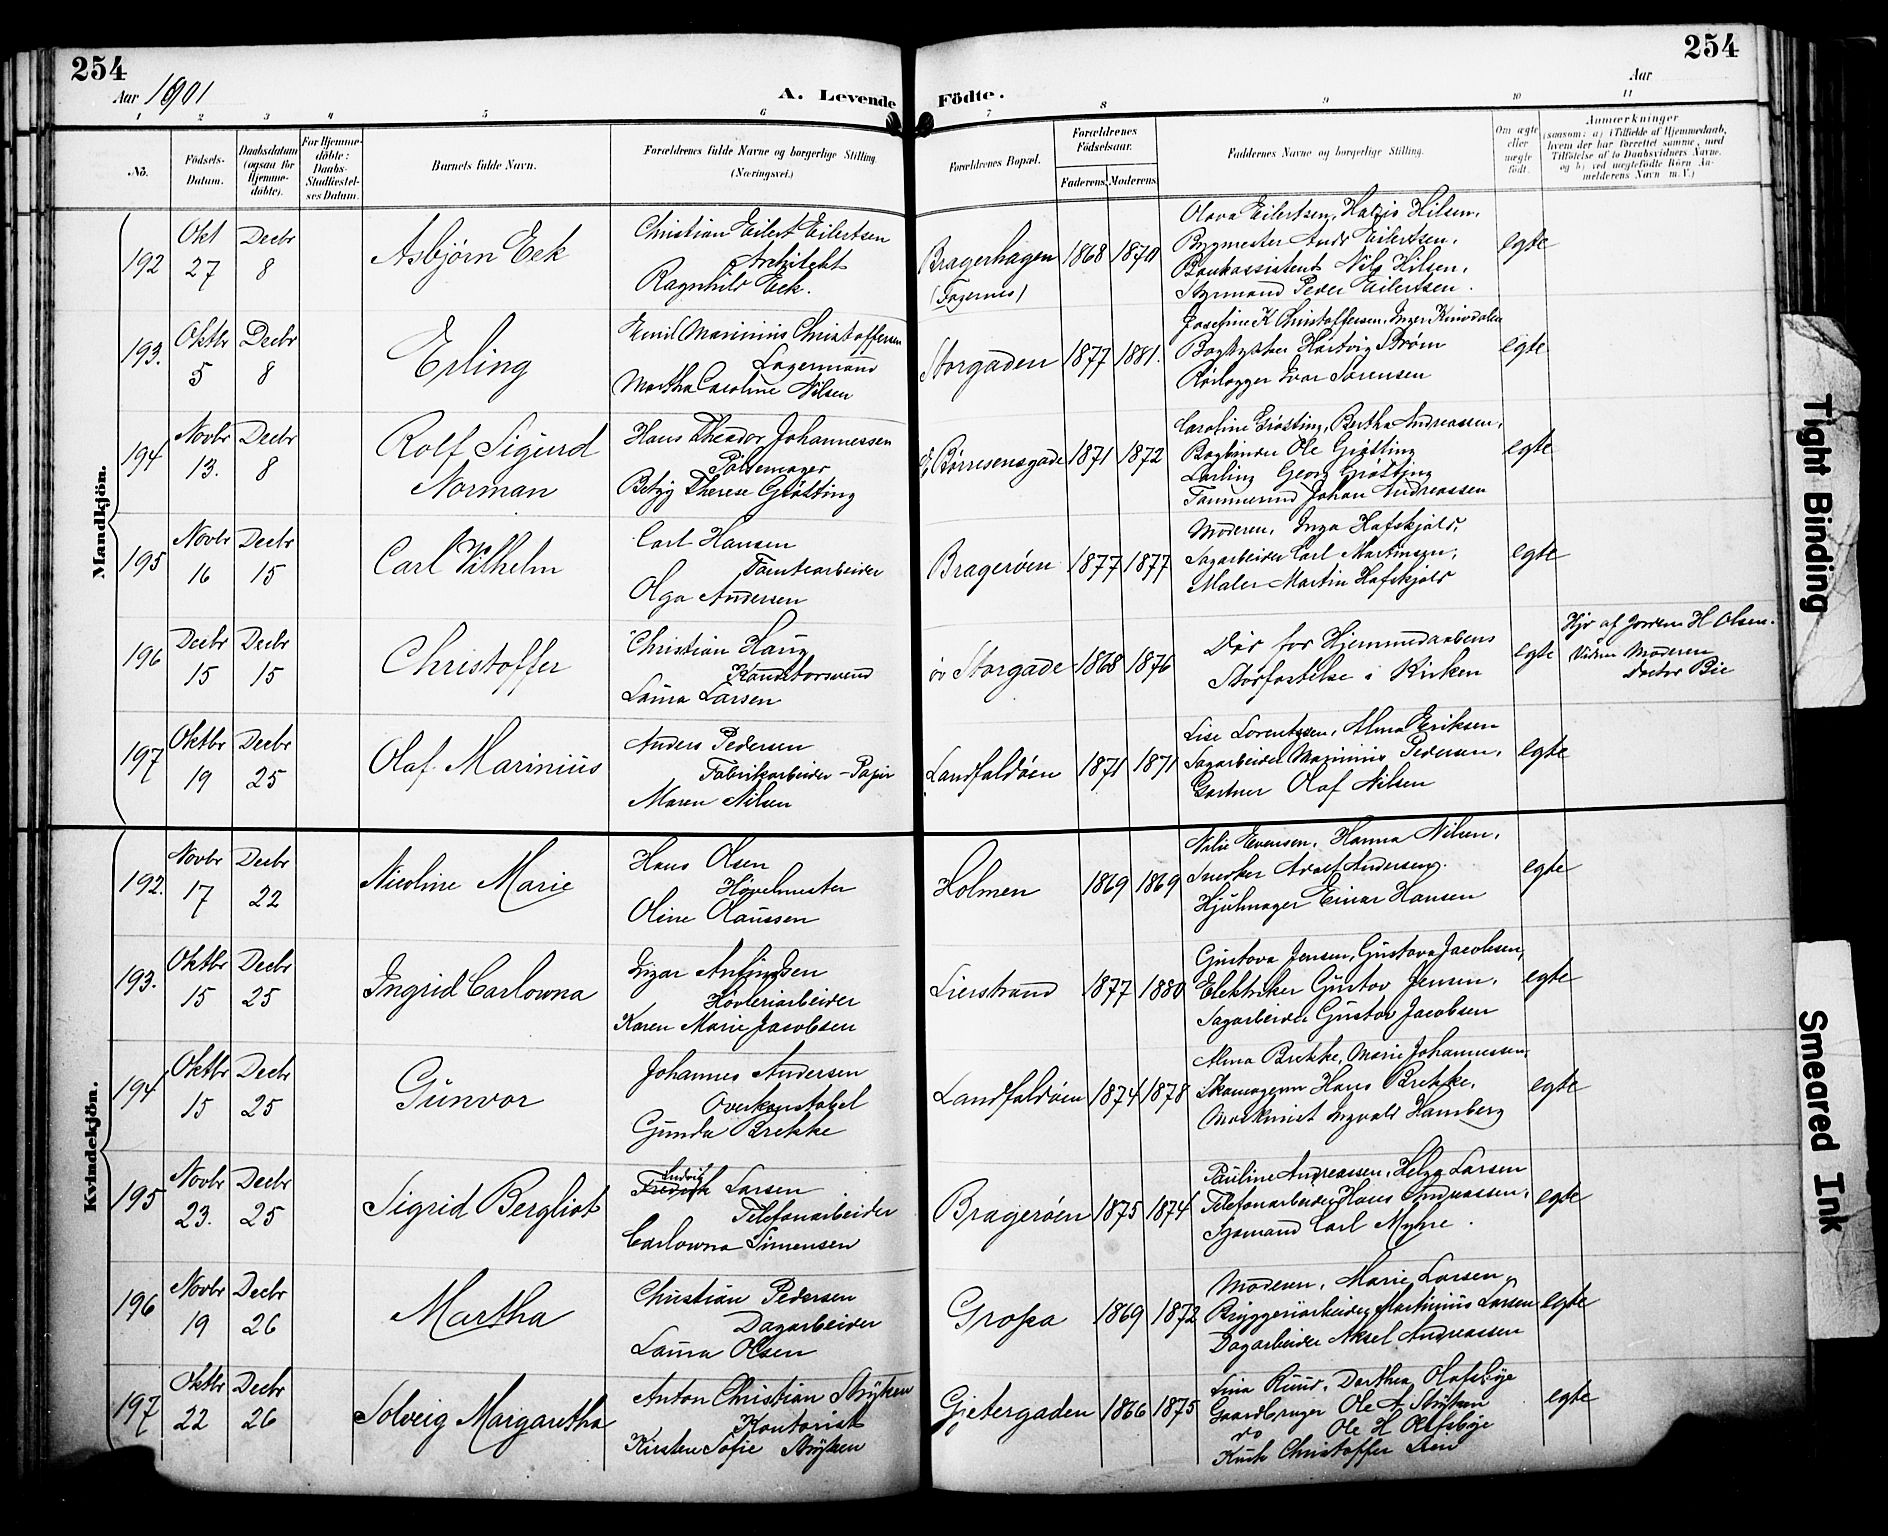 254
254
Aar 1901
A. Levende Födte.
Aar
1 2 3 4 5 6 7 8 9 10 11
No.
Födsels-Datum.
Daabsdatum (ogsaa for Hjemme-döbte).
For Hjemme-döbte: Daabs-Stadfæstel-ses Datum.
Barnets fulde Navn.
Forældrenes fulde Navne og borgerlige Stilling (Næringsvei.)
Forældrenes Bopæl.
Forældrenes Födselsaar.
Faderens. Moderens.
Faddernes Navne og borgerlige Stilling.
Om ægte eller uægte födt.
Anmærkninger
(saasom: a) i Tilfælde af Hjemmedaab, hvem der har forrettet samme, med Tilföielse af to Daabsvidners Navne, og b) ved uægtefödte Börn Anmelderens Navn m. V.)
Mandkjön.
192 Okt 27 Decbr 8 Asbjørn Eek
Christian Eilert Eilertsen
Architekt
Ragnhild Eek.
Bragerhagen (Fagernes) 1868 1870
Olava Eilertsen, Hilsen,
Bygmester Andr Eilertsen,
Bankassistent Nils Hilsen,
Styrmand Peder Eilertsen.
egte
193. Oktbr 5 Decbr 8 Erling
Emil Marinius Christoffersen
Lagermand
Martha Caroline Nilsen
Storgaden 1877 1881.
Josefine K Christoffersen, Inger
Hartvig Strøm
Rørlægger Ivar Sørensen
egte
194 Novbr 13. Decbr 8 Rolf Sigurd Norman
Hans Theodor Johannessen
Pølsemager
Betzy Therese Grøstting
Børresensgade 1871 1872
Caroline Grøsting, Bertha Andreassen,
Bogbinder Ole Grøtting
Lærling Georg Grøstting
Tømmermd Johan Andreassen
egte
195 Novbr 16 Decbr 15 Carl Vilhelm
Carl Hansen
Tomtearbeider
Olga Andersen
Bragerøen 1877 1877
Moderen, Inga Hafskjold,
Sagarbeider Carl Martinsen,
Maler Martin Hafskjold
egte
196 Decbr 15 Decbr 15 Christoffer
Christian Haug
Konditorsvend
Laura Larsen
øv Storgade 1868 1876
Død før Hjemmedaabens
Stadfæstelse i Kirken
egte
Hjd af Jordem H Olsen.
Vidner Moderen
Doctor Bie
197 Oktbr 19 Decbr 25 Olaf Marinius
Anders Pedersen
Fabrikarbeider - Papir
Maren Nilsen
Landfaldøen 1871 1871
Lise Lorentzen, Alma Eriksen
Sagarbeider Marinius Pedersen,
Gartner Olaf Nilsen
egte
Kvindekjön.
192. Novbr 17 Decbr 22 Nicoline Marie
Hans Olsen
Høvelmester
Oline Olaussen
Holmen 1869 1869
Evensen, Hanna Nilsen,
Snedker Adolf Andersen,
Hjulmager Einar Hansen
egte
193. Oktbr 15 Decbr 25 Ingrid Carlowna
Høvleriarbeider
Karen Marie Jacobsen
Lierstrand 1877 1880
Gustava Jensen, Gustava Jacobsen,
Elektriker Gustav Jensen,
Sagarbeider Gustav Jacobsen
egte
194 Oktbr 15 Decbr 25 Gunvor
Johannes Andersen
Overkonstabel
Gunda Brekke
Landfaldøen 1874 1878
Alma Brekke, Marie Johannessen,
Skomagerm Hans Brekke,
Maskinist Ingvald Hamberg
egte
195 Novbr 23. Decbr 25 Sigrid Bergliot
Ludvig
Fredrik Larsen
Telefonarbeider
Carlowna Simensen
Bragerøen 1875 1874
Pauline Andreassen, Helga Larsen
Telefonarbeider Hans Andreassen,
Sjømand Carl Myhre.
egte
196 Novbr 19 Decbr 26 Martha
Christian Pedersen
Dagarbeider
Laura Olsen
Gropa 1869 1872
Moderen, Marie Larsen,
Bryggeriarbeider Martinius Larsen
Dagarbeider Aksel Andreassen
egte
197 Oktbr 22 Decbr 26 Solveig Margaretha
Anton Christian Strøyken
Kontorist
Kirsten Sofie Strøyken
Gjetergaden 1866 1875
Lina Ruud, Dorthea Olafsbye
Gaardbruger Ole A. Strøyken
do Ole H Olafsbye
Kusk Christoffer Lien
egte
Tight Binding
Smeared Ink